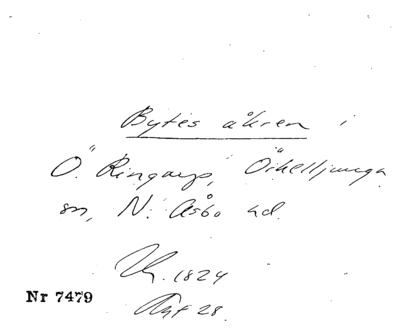 Bytes åkren i
Ö. Ringarp, Örkelljunga
sn, N. Åsbo hd.
Uk. 1824
Akt 28.
Nr 7479